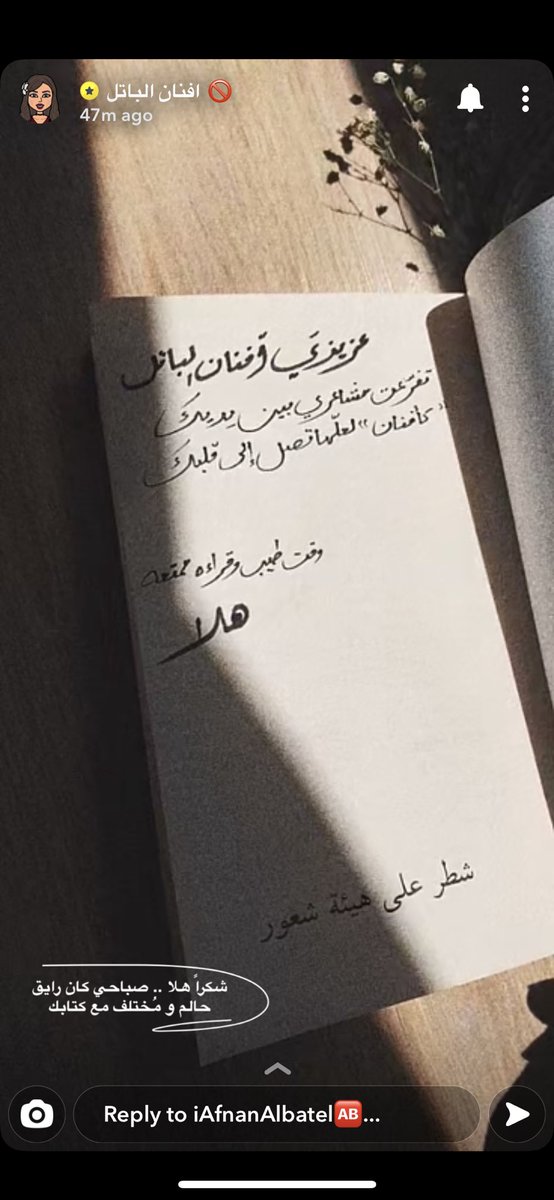 افنان الباتل
47m ago
عزيزتي أفنان الباتل
تفرّعن مشاعري بين يديك
"كأفنان" لعلّها تصل إلى قلبك
وقت طيب وقراءه ممتعه
هلا
شطر على هيئة شعور
شكراً هلا .. صباحي كان رايق
حالم و مُختلف مع كتابك
Reply to iAfnanAlbatel🆎...